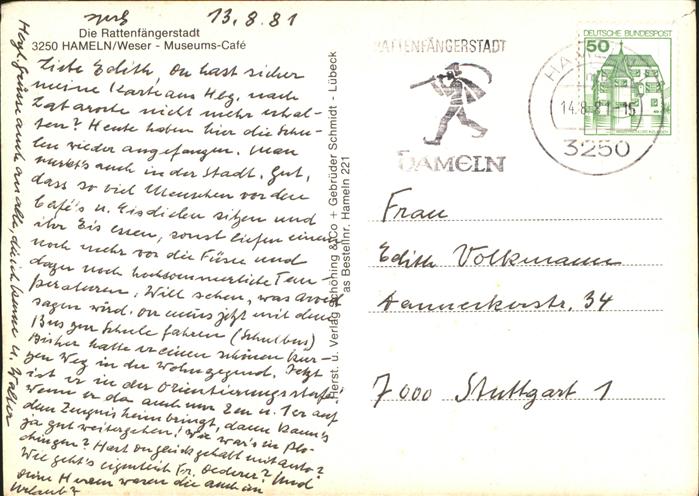 13.8.81
Die Rattenfängerstadt
3250 HAMELN/Weser - Museums-Café
Liebe Edith, Du hast sicher
meine Karte aus Hbg. nach
nicht mehr erhal-
ten? Heute haben hier die Schu-
len wieder angefangen. Man
merkt's auch in der Stadt. Gut,
dass so viel Menschen vor den
Café's u. Eisdielen sitzen und
ihr Eis essen, sonst liefen einem
noch mehr vor die Füsse und
dazu noch hochsommerliche Tem-
peraturen. Will sehen, was
sagen wird, er muss jetzt mit dem
Bus zur Schule fahren (Schulbus)
Bisher hatte er einen schönen kur-
zen Weg in der Wohngegend. Jetzt
ist er in der Orientierungsstufe
Wenn er da auch nur 2en u. 1er auf
dem Zeugnis heimbringt, dann kann's
ja gut weitergehen! Wie war's in Plo-
chingen? Hast Du Glück gehabt mit Auto?
Wie geht's eigentlich Fr. Oederer? Und
Deine Herren waren die auch im
Urlaub?
Herzl. Grüsse auch an alle, die ich kenne u. Walter
Herst. u. Verlag Schöning & Co + Gebrüder Schmidt - Lübeck
as Bestellnr. Hameln 221
RATTENFÄNGERSTADT
HAMELN
DEUTSCHE BUNDESPOST
50
HAMELN
14.8.81-15
3250
Frau
Edith Volkmann
Danneckerstr. 34
7000 Stuttgart 1